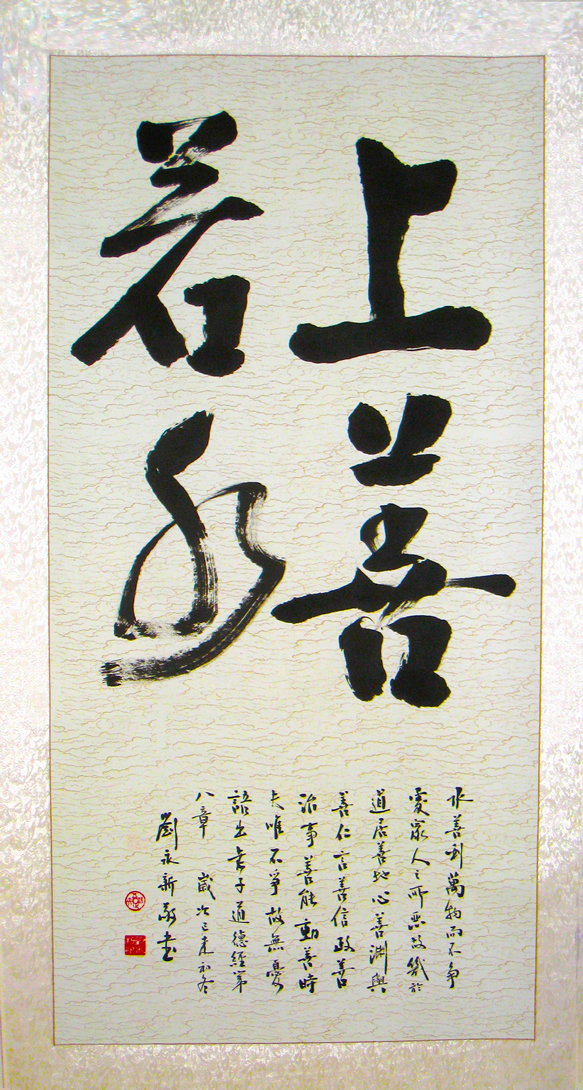 上善
若水
水善利萬物而不争
處衆人之所惡故幾於
道居善地心善淵與
善仁言善信政善
治事善能動善時
夫唯不爭故無憂
語出老子道德經第
八章 歲次己未初冬
劉永新敬書